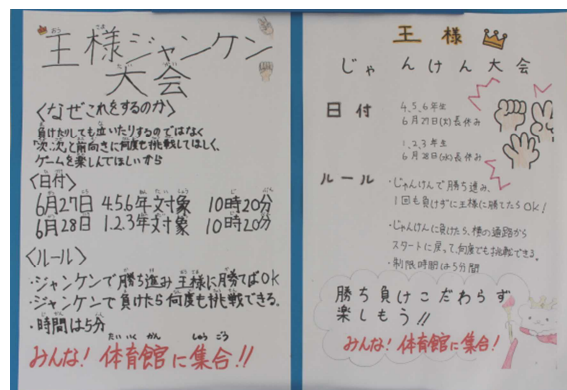 王様ジャンケン
大会
〈なぜこれをするのか〉
負けたりしても泣いたりするのではなく
「次、次」と前向きに何度も挑戦してほしく、
ゲームを楽しんでほしいから
〈日付〉
6月27日 4.5.6年対象 10時20分
6月28日 1.2.3年対象 10時20分
〈ルール〉
・ジャンケンで勝ち進み王様に勝てばOK
・ジャンケンで負けたら何度も挑戦できる。
・時間は5分
みんな!体育館に集合!!
王様
じゃんけん大会
日付
4、5、6年生
6月27日(火)長休み
1、2、3年生
6月28日(水)長休み
ルール
・じゃんけんで勝ち進み、
1回も負けずに王様に勝てたらOK!
・じゃんけんに負けたら、横の通路から
スタートに戻って、何度でも挑戦できる。
・制限時間は5分間
勝ち負けこだわらず
楽しもう!!
みんな!体育館に集合!